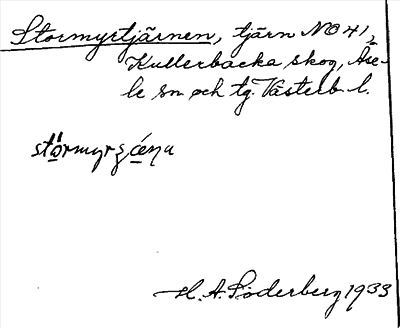 Stormyrtjärnen, tjärn NO 41,
Kullerbacka skog, Åse-
le sn och tg. Västerb. l.
H. A. Söderberg 1933